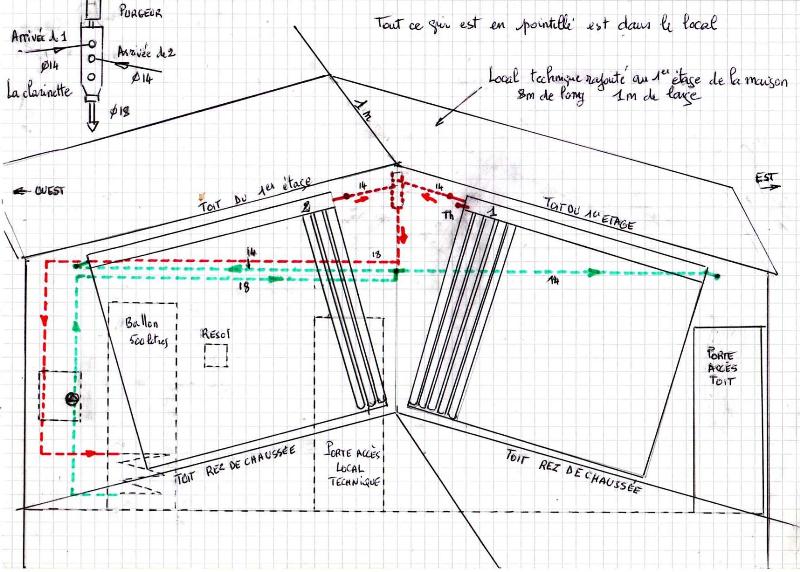 PURGEUR
Tout ce qui est en pointillé est dans le local
Arrivée de 1
Ø14
Arrivée de 2
Ø14
La clarinette
Ø18
Local technique rajouté au 1er étage de la maison
8m de long 1m de large
1m
OUEST
EST
TOIT DU 1er étage
TOIT DU 1er ETAGE
14
14
Th
2
1
18
14
18
14
Ballon
500 litres
RESOL
PORTE
ACCÈS
TOIT
PORTE ACCÈS
LOCAL
TECHNIQUE
TOIT REZ DE CHAUSSÉE
TOIT REZ DE CHAUSSÉE